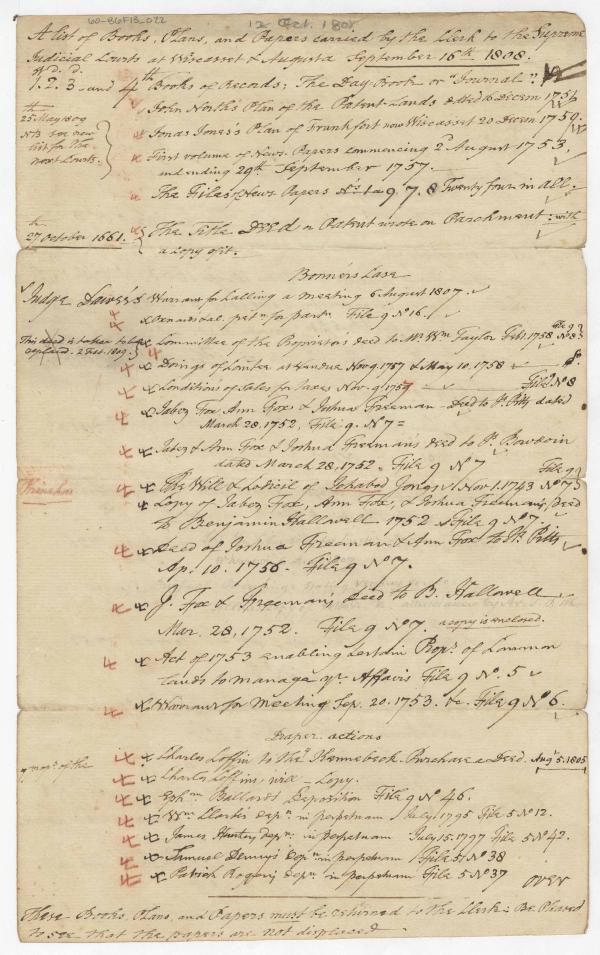 60-86F13-022
12 Oct. 1808
A list of Books, Plans, and Papers carried by the Clerk to the Supreme
Judicial Courts at Wiscasset & Augusta September 16th 1808.
1. 2. 3 and 4th Books of Records; The Day-Book or "Journal".
John North's Plan of the Patent-Lands dated 16 Decem 1751
25th May 1809
NB see new
list for the
next Courts.
Jonas Jones's Plan of Frankfort now Wiscasset 20 Decem 1759.
First volume of News-Papers commencing 2d August 1753,
and ending 29th September 1757.
The Files of News Papers No 1 a 9 7. 8 Twenty four in all.
27th October 1661.
The Title Deed or Patent wrote on Parchment; with
a copy of it.
Bonner's Case
Judge Dawes's
Warrant for Calling a meeting 6 August 1807.
petn for partn File 9 No 16.
This deed is taken to be
copied. 2 Feb. 1809.
Committee of the Proprietors deed to Mr. Wm Taylor Feb. 1758 File 9 No 8
Doings of Comtee at Vendue Nov. 9. 1757 & May 10. 1758 do.
Conditions of Sales for taxes Nov. 9. 1757 File 9 No 8
Jabez Fox Ann Fox & Joshua Freeman Deed to Js. Pitts dated
March 28. 1752, File 9. No 7
Jabez & Ann Fox & Joshua Freemans deed to Js. Bowdoin
dated March 28, 1752. File 9 No 7
The Will & Codicil of Ichabod Jones Nov. 1. 1743 File 9 No 7
Copy of Jabez Fox, Ann Fox, & Joshua Freeman's Deed
to Benjamin Hallowell 1752 File 9 No 7.
Deed of Joshua Freeman & Ann Fox to Js Pitts
Ap. 10. 1756. File 9 No 7.
J. Fox & Freeman's Deed to B. Hallowell
Mar. 28, 1752. File 9 No 7. a copy is enclosed.
Act of 1753 enabling certain Props. of Common
lands to manage yr. Affairs File 9 No. 5
Warrant for meeting Sep. 20. 1753. &c. File 9 No 6.
Draper actions
Charles Coffin to the Kennebeck Purchase a Deed. Augt. 5. 1805
Charles Coffins, Copy.
Ephm Ballard's Deposition File 9 No 46.
Wm Clarks Depn. in perpetuam July 1795 File 5 No 12.
James Huntey Depn. in perpetuam July 15. 1797 File 5 No 42.
Samuel Denny's Depn in perpetuam File 5 No 38
Patrick Rogers Depn. in perpetuam File 5 No 37
over
These Books, Plans, and Papers must be returned to the Clerk: Be Pleased
to see that the papers are not displaced.